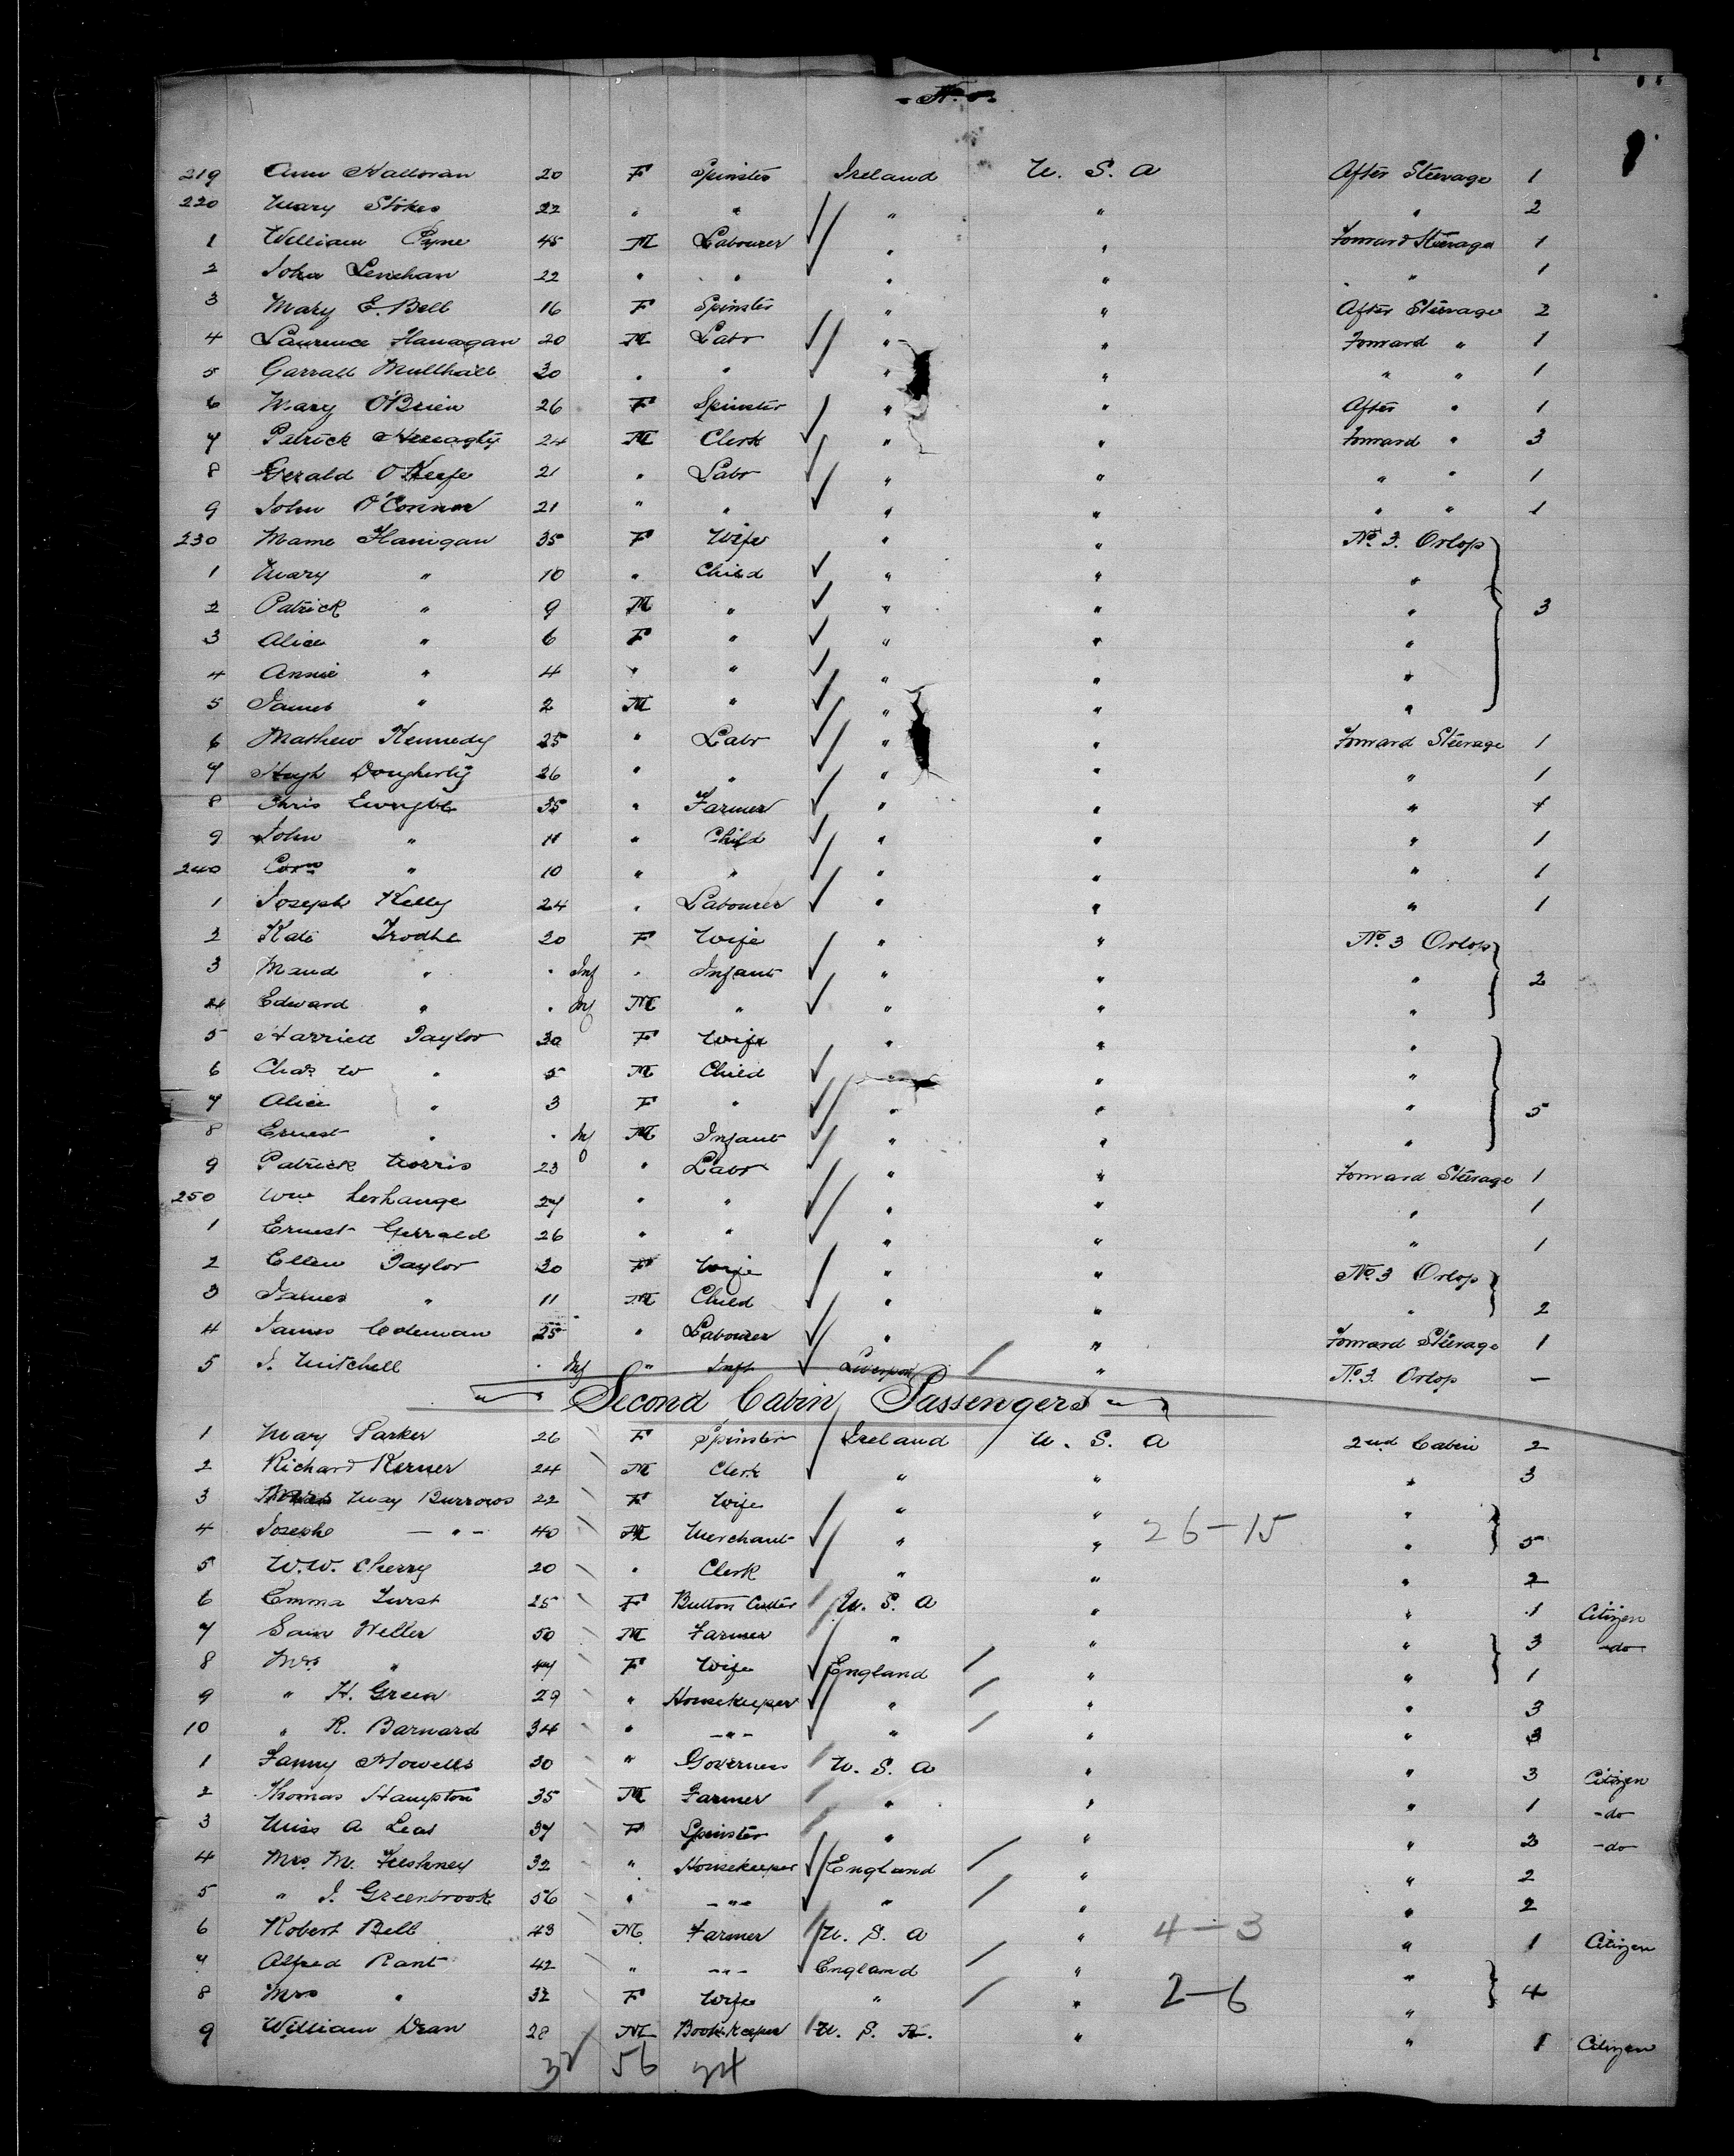 219 Ann Halloran 20 F Spinster Ireland U. S. A After Steerage 1
220 Mary Stokes 22 " " " " " 2
1 William Pyne 45 M Labourer " " Forward Steerage 1
2 John Lenehan 22 " " " " " 1
3 Mary E. Bell 16 F Spinster " " After Steerage 2
4 Laurence Flanagan 20 M Labr " " Forward " 1
5 Garrall Mullhall 30 " " " " " " 1
6 Mary O'Brien 26 F Spinster " " After " 1
7 Patrick 24 M Clerk " " Forward " 3
8 Gerald O'Keefe 21 " Labr " " " " 1
9 John O'Connor 21 " " " " " " 1
230 Mame Flanigan 35 F Wife " " No. 3. Orlop
1 Mary " 10 " Child " " "
2 Patrick " 9 M " " " " 3
3 Alice " 6 F " " " "
4 Annie " 4 " " " " "
5 James " 2 M " " " "
6 Mathew Kennedy 25 " Labr " " Forward Steerage 1
7 Hugh Dougherty 26 " " " " " 1
8 Chris 35 " Farmer " " " 1
9 John " 11 " Child " " " 1
240 Corn " 10 " " " " " 1
1 Joseph Kelly 24 " Labourer " " " 1
2 Kate 20 F Wife " " No. 3 Orlop
3 Maud " " Inf " Infant " " " 2
4 Edward " " Inf M " " " "
5 Harriett Taylor 30 F Wife " " "
6 Chas W " 5 M Child " " "
7 Alice " 3 F " " " " 5
8 Ernest " " Inf M Infant " " "
9 Patrick Morris 23 " Labr " " Forward Steerage 1
250 Wm 27 " " " " " 1
1 Ernest Gerrald 26 " " " " " 1
2 Ellen Taylor 30 F Wife " " No. 3 Orlop
3 James " 11 M Child " " " 2
4 James Coleman 25 " Labourer " " Forward Steerage 1
5 J. Mitchell " Inf " Inft Liverpool " No. 3. Orlop —
Second Cabin Passengers
1 Mary Parker 26 F Spinster Ireland U. S. A 2nd Cabin 2
2 Richard Kerner 24 M Clerk " " " 3
3 May Burrows 22 F Wife " " "
4 Joseph - " - 40 M Merchant " " 26-15 " 5
5 W. W. Cherry 20 " Clerk " " " 2
6 Emma Furst 25 F Button Cutter U. S. A " " 1 Citizen
7 Sam Weller 50 M Farmer " " " 3 -do-
8 Mrs " 47 F Wife England " " 1
9 " H. Green 29 " Housekeeper " " " 3
10 " R. Barnard 34 " - " - " " " 3
1 Fanny Howells 30 " Governess U. S. A " " 3 Citizen
2 Thomas Hampton 35 M Farmer " " " 1 -do-
3 Miss A Leat 37 F Spinster " " " 3 -do-
4 Mrs M. Fieshney 32 " Housekeeper England " " 2
5 " J. Greenbrook 56 " - " - " " " 2
6 Robert Bell 43 M Farmer U. S. A " 4-3 " 1 Citizen
7 Alfred Rant 42 " - " - England " "
8 Mrs " 32 F Wife " " 2-6 " 4
9 William Dean 28 M Bookkeeper U. S. A. " " 1 Citizen
32 56 24